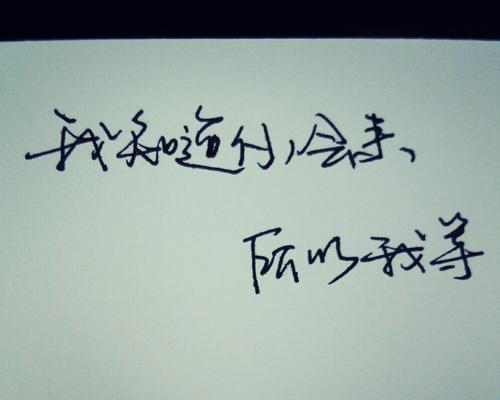 我知道你会来、
所以我等